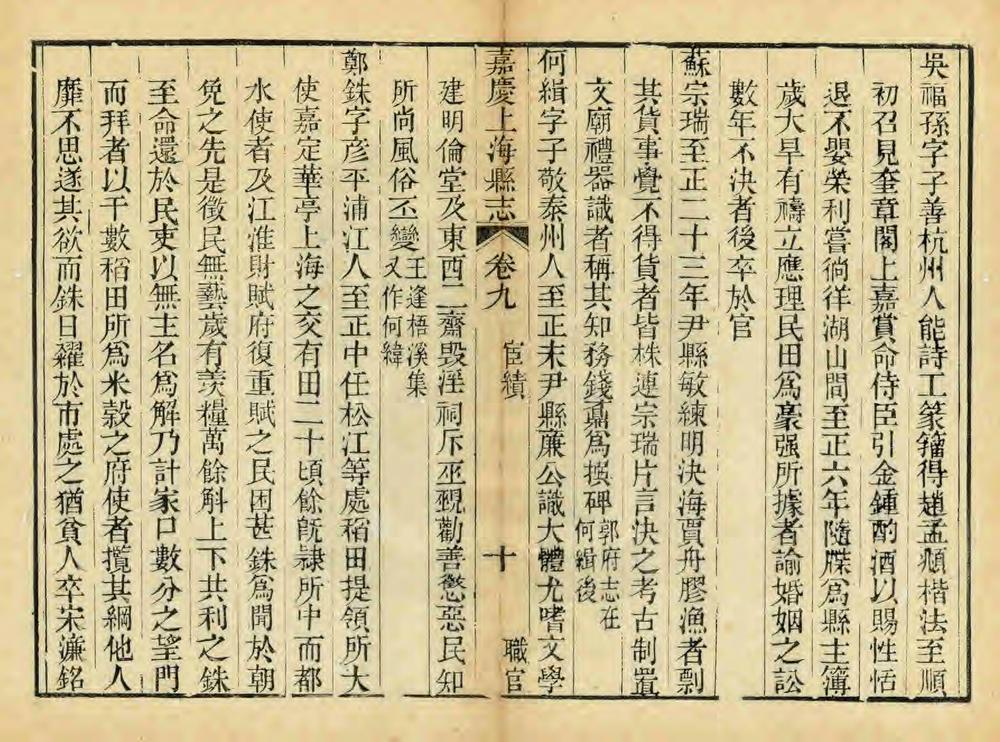 吳福孫字子善杭州人能詩工篆籒得趙孟頫楷法至順
初召見奎章閣上嘉賞命侍臣引金鍾酌酒以賜性恬
退不嬰榮利嘗徜徉湖山間至正六年隨牒爲縣主簿
歲大旱有禱立應理民田爲豪强所據者諭婚姻之訟
數年不決者後卒於官
蘇宗瑞至正二十三年尹縣敏練明決海賈舟膠漁者剽
其貨事覺不得貨者皆株連宗瑞片言決之考古制置
文廟禮器識者稱其知務錢鼒爲撰碑郭府志在
何緝後
何緝字子敬泰州人至正末尹縣廉公識大體尤嗜文學
嘉慶上海縣志 卷九 宦績 十 職官
建明倫堂及東西二齋毀淫祠斥巫覡勸善懲惡民知
所尚風俗丕變王逢梧溪集
又作何緯
鄭銖字彥平浦江人至正中任松江等處稻田提領所大
使嘉定華亭上海之交有田二十頃餘旣隷所中而都
水使者及江淮財賦府復重賦之民困甚銖爲聞於朝
免之先是徵民無藝歲有羨糧萬餘斛上下共利之銖
至命還於民吏以無主名爲解乃計家口數分之望門
而拜者以千數稻田所爲米穀之府使者攬其綱他人
靡不思遂其欲而銖日糴於市處之猶貧人卒宋濂銘